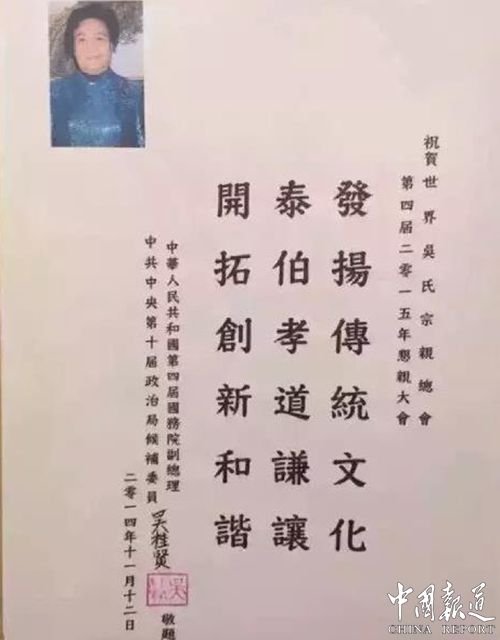 祝賀世界吳氏宗親總會
第四屆二零一五年懇親大會
發揚傳統文化
泰伯孝道謙讓
開拓創新和諧
中華人民共和國第四屆國務院副總理
中共中央第十屆政治局候補委員吴桂賢
敬題
二零一四年十一月十二日
中國報道
CHINA REPORT